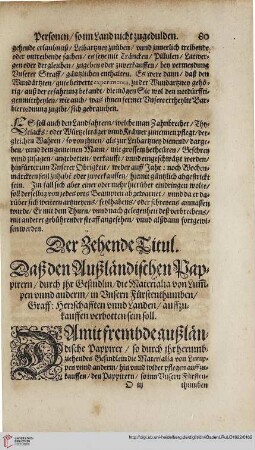 Personen / so im Land nicht zugedulden. 80
gehende erlaubnuß / Leibartznei zuüben / vnnd innerlich treibende
oder vntreibende sachen / es seie mit Träncken / Pillulen / Latwer-
gen oder dergleichen / zugeben oder zuverkauffen / bey vermeydung
Vnserer Straff / gäntzlichen enthalten. Es were dann / daß den
Wundärtzten / zu der Wundartznei gehö-
rig / auß der erfahrung bekandt / die mögen Sie wol den notdürffti-
gen mittheylen / wie auch / was ihnen
Barbierordnung zugibt / sich gebrauchen.
ES soll auch den Landfahrern / welche man Zahnbrecher / Thy-
riacks: oder Würtzkrämer vnnd Krämer zunennen pfleget / der-
gleichen Wahren / so von ihnen / als zur Leibartznei dienend / darge-
ben / vnnd dem gemeinen Mann / mit grossem betheuren / Geschrey
vnnd zusagen / angebotten / verkaufft / vnnd eingeschwätzt werden /
hinfürter in Vnserer Obrigkeit / weder auff Jahr: noch Wochen-
märckten feyl zuhaben oder zuverkauffen / hiemit gäntzlich abgestrickt
sein. Im fall sich aber einer oder mehr hierüber
soll derselbig von jedes orts Beampten abgeschafft / vnnd da er dar-
über sich weiters
wurde / Er mit dem Thurn / vnnd nach gelegenheit deß verbrechens /
mit anderer gebührender straff angesehen / auch alßdann fortgewisen
werden.
Der Zehende Titul.
Daß den Außländischen Pap-
pirern / durch ihr Gesindlin / die Materialia von Lum-
pen vnnd andern / in Vnsern Fürstenthumben /
Graff: Herrschafften vnnd Landen / auffzu-
kauffen verbotten sein soll.
DAmit frembde außlän-
dische Pappirer / so durch ihr herumb-
ziehendes Gesindlein die Materialia von Lum-
pen vnnd andern / hin vnnd wider pflegen auffzu-
kauffen / den Pappirern / so in Vnsern Fürsten-
thumben